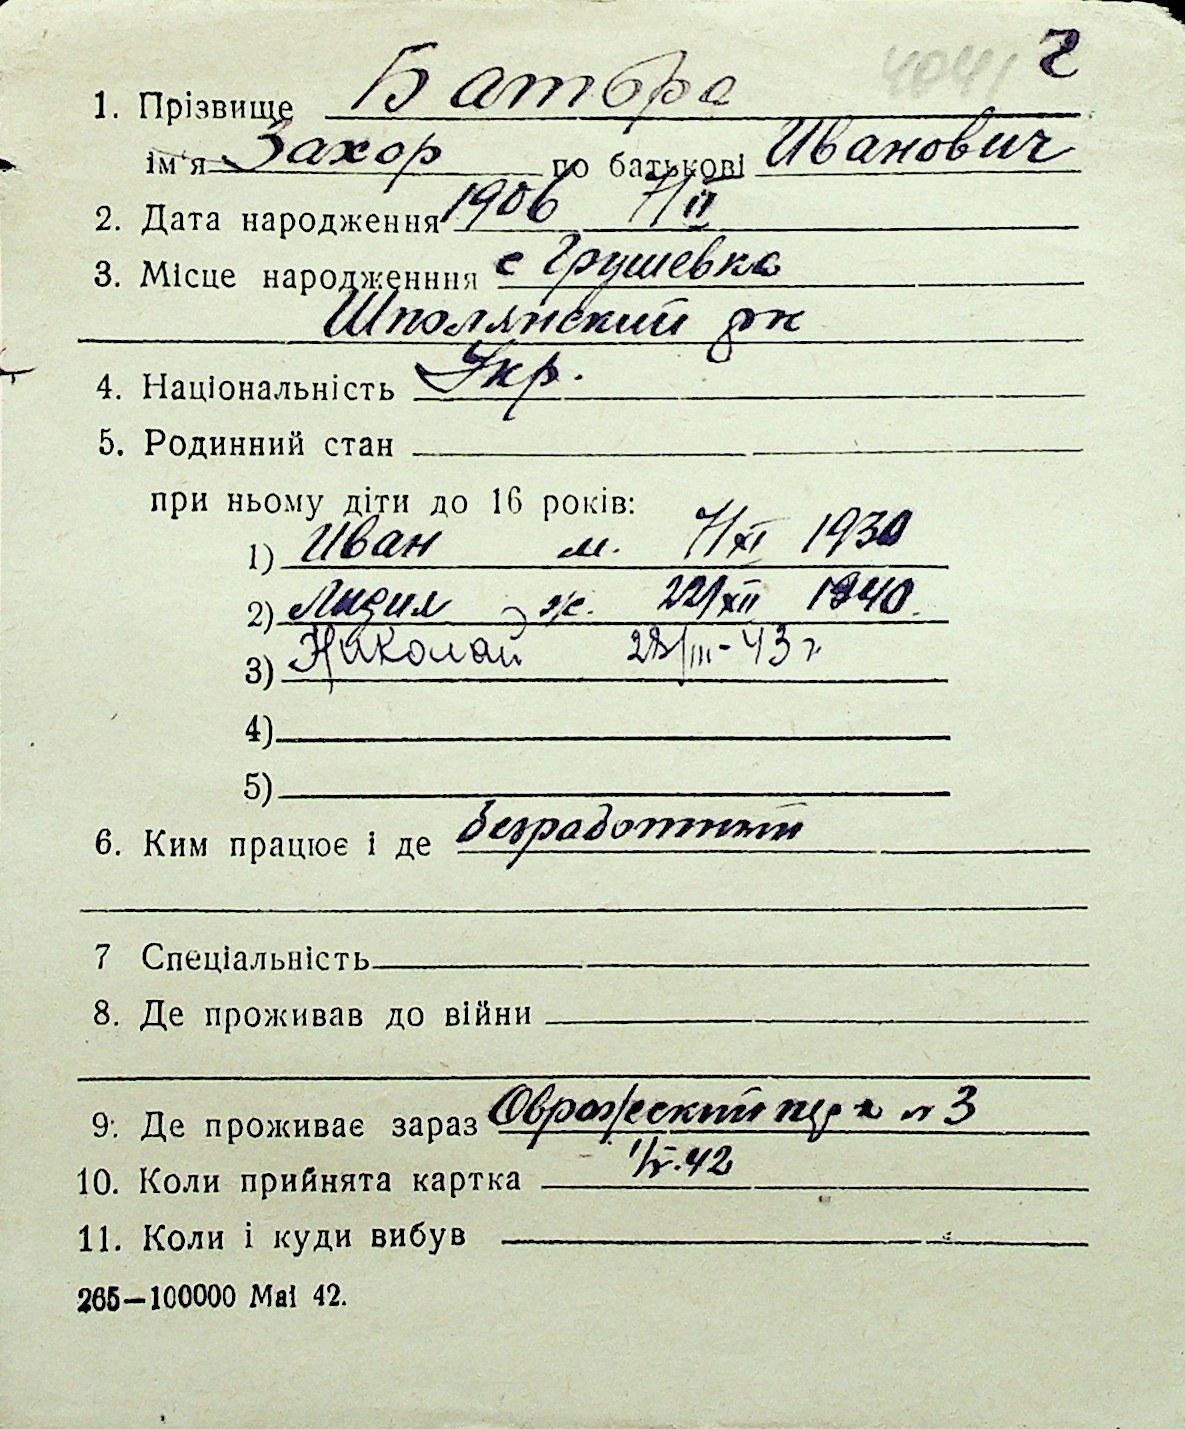 4041 2
1. Прізвище Батора
ім'я Захор по батькові Иванович
2. Дата народження 1906 7/II
3. Місце народженння с Грушевка
Шполянский рк
4. Національність Укр.
5. Родинний стан
при ньому діти до 16 років:
1) Иван м. 7/XI 1930
2) Лидия ж. 22/XII 1940.
3) Николай 28/III-43 г.
4)
5)
6. Ким працює і де безработный
7 Спеціальність
8. Де проживав до війни
9. Де проживає зараз № 3
10. Коли прийнята картка 1/V.42
11. Коли і куди вибув
265—100000 Mai 42.